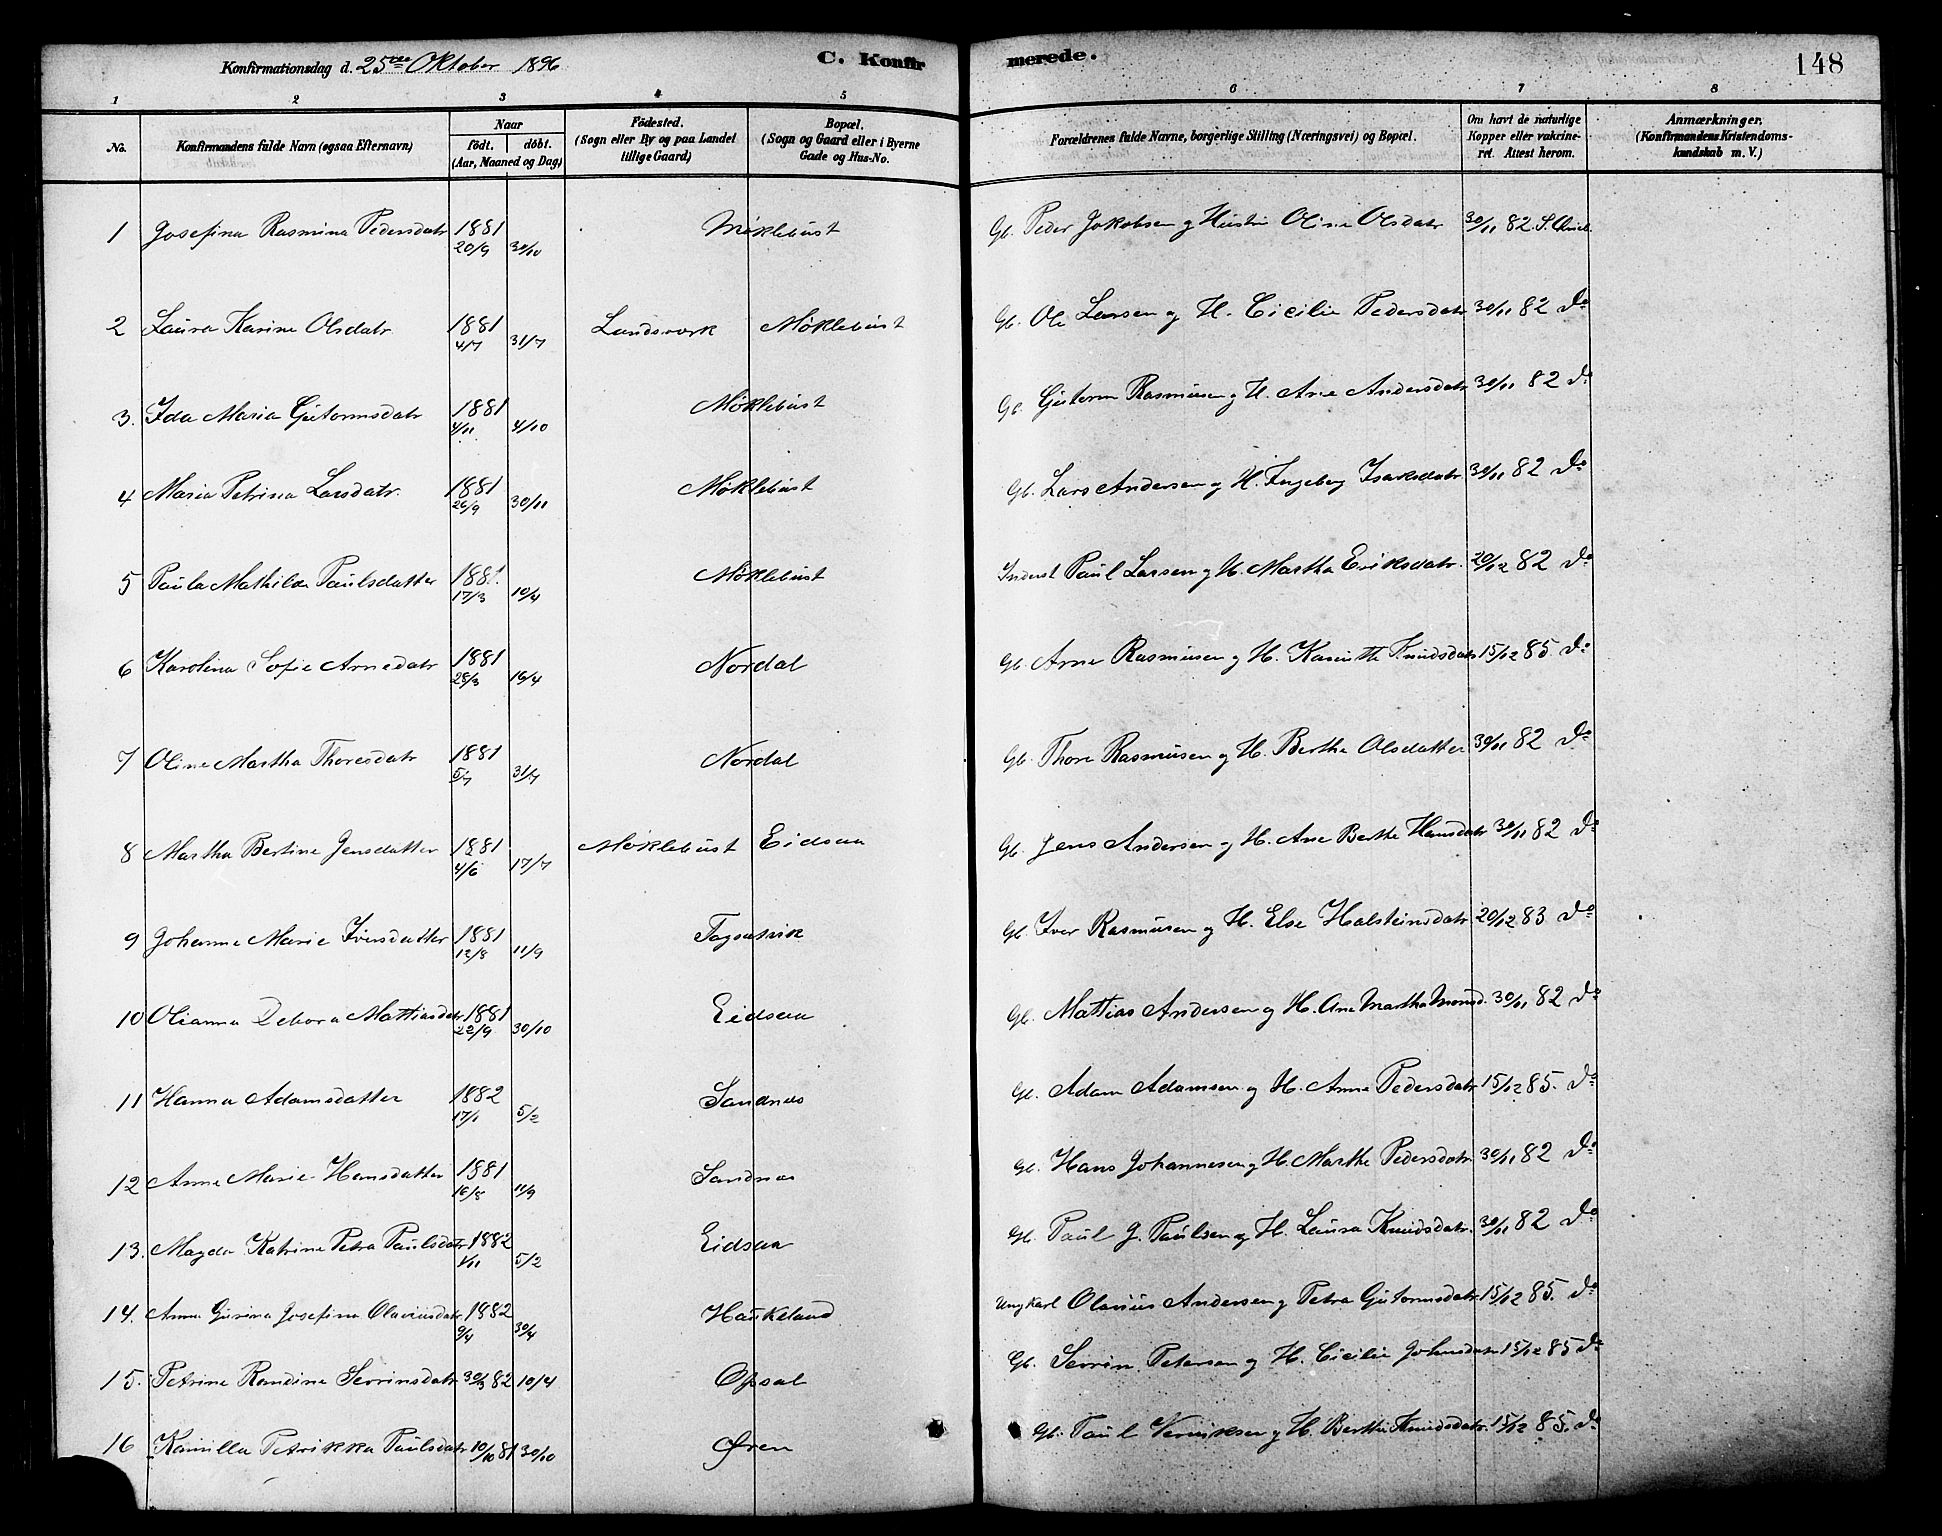 Konfirmationsdag d. 25de Oktober 1896 C. Konfirmerede. 148
1 2 3 4 5 6 7 8
No. Konfirmandens fulde Navn (ogsaa Efternavn) Naar født. døbt. (Aar, Maaned og Dag) Fødested. (Sogn eller By og paa Landet tillige Gaard) Bopæl. (Sogn og Gaard eller i Byerne Gade og Hus-No. Forældrenes fulde Navne, borgerlige Stilling (Næringsvei) og Bopæl. Om havt de naturlige Kopper eller vakcineret. Attest herom. Anmærkninger. (Konfirmandens Kristendomskundskab m. V.)
1 Josefina Rasmina Pedersdatr 1881 20/9 30/10 Møklebust Gb. Peder Jakobsen og Hustru Oline Olsdatr 30/11 82.
2 Laura Karine Olsdatr 1881 4/7 31/7 Landsverk Møklebust Gb. Ole Larsen og H. Cicilie Pedersdatr 30/11 82 do
3. Ida Maria Gutormsdatr 1881 4/11 Møklebust Gb. Gutorm Rasmusen og H. Ane Andersdatr 30/11 82 do
4 Maria Petrina Larsdatr. 1881 26/9 30/11 Møklebust Gb. Lars Andersen og H. Ingeborg Isaksdatr 30/11 82 do
5 Paula Mathilda Paulsdatter 1881. 17/3 10/4 Møklebust Inderst Paul Larsen og H. Martha Eriksdatr. 20/12 82 do
6 Karolina Sofie Arnedatr 1881 28/3 19/4 Nordal Gb. Arne Rasmusen og H. Knudsdatr 15/12 85. do
7 Oline Martha Thoresdatr 1881 5/7 31/7 Nordal Gb. Thore Rasmusen og H. Berthe Olsdatter 30/11 82 do
8 Martha Bertine Jensdatter 1881 4/6 17/7 Møklebust Eidsaa Gb. Jens Andersen og H. Ane Berthe Hansdatr 30/11 82 do
9 Johanne Marie Iversdatter 1881 12/8 11/9 Gb. Iver Rasmusen og H. Else Halsteinsdatr 20/12 83 do
10 Olianna Debora Mattiasdatr 1881 22/9 30/10 Eidsaa Gb. Mattias Andersen og H. Ane Martha Monsd. 30/11 82 do
11 Hanna Adamsdatter 1882 17/1 5/2 Sandnes Gb. Adam Adamsen og H. Anne Pedersdatr 15/12 85. do
12 Anne Marie Hansdatter 1881 16/8 11/9 Sandnes Gb. Hans Johannesen og H. Marthe Pedersdatr 30/11 82 do
13. Magda Katrine Petra Paulsdatr 1882 1/11 5/2 Eidsaa Gb. Paul J. Paulsen og H. Laura Knudsdatr. 30/11 82 do
14. Anna Gurina Josefina Olaviusdatr 1882 9/4 30/4 Haukeland Ungkarl Olavius Andersen og Petra Gutormsdatr 15/12 85. do
15. Petrine Randine Severinsdatr 30/3 82 10/4 Opsal Gb. Severin Petersen og H. Cicilie Johnsdatr 15/12 85 do
16 Kamilla Petrikka Paulsdatr 10/10 81 30/10 Øren Gb. Paul og H. Berthe Knudsdatr. 15/12 85. do